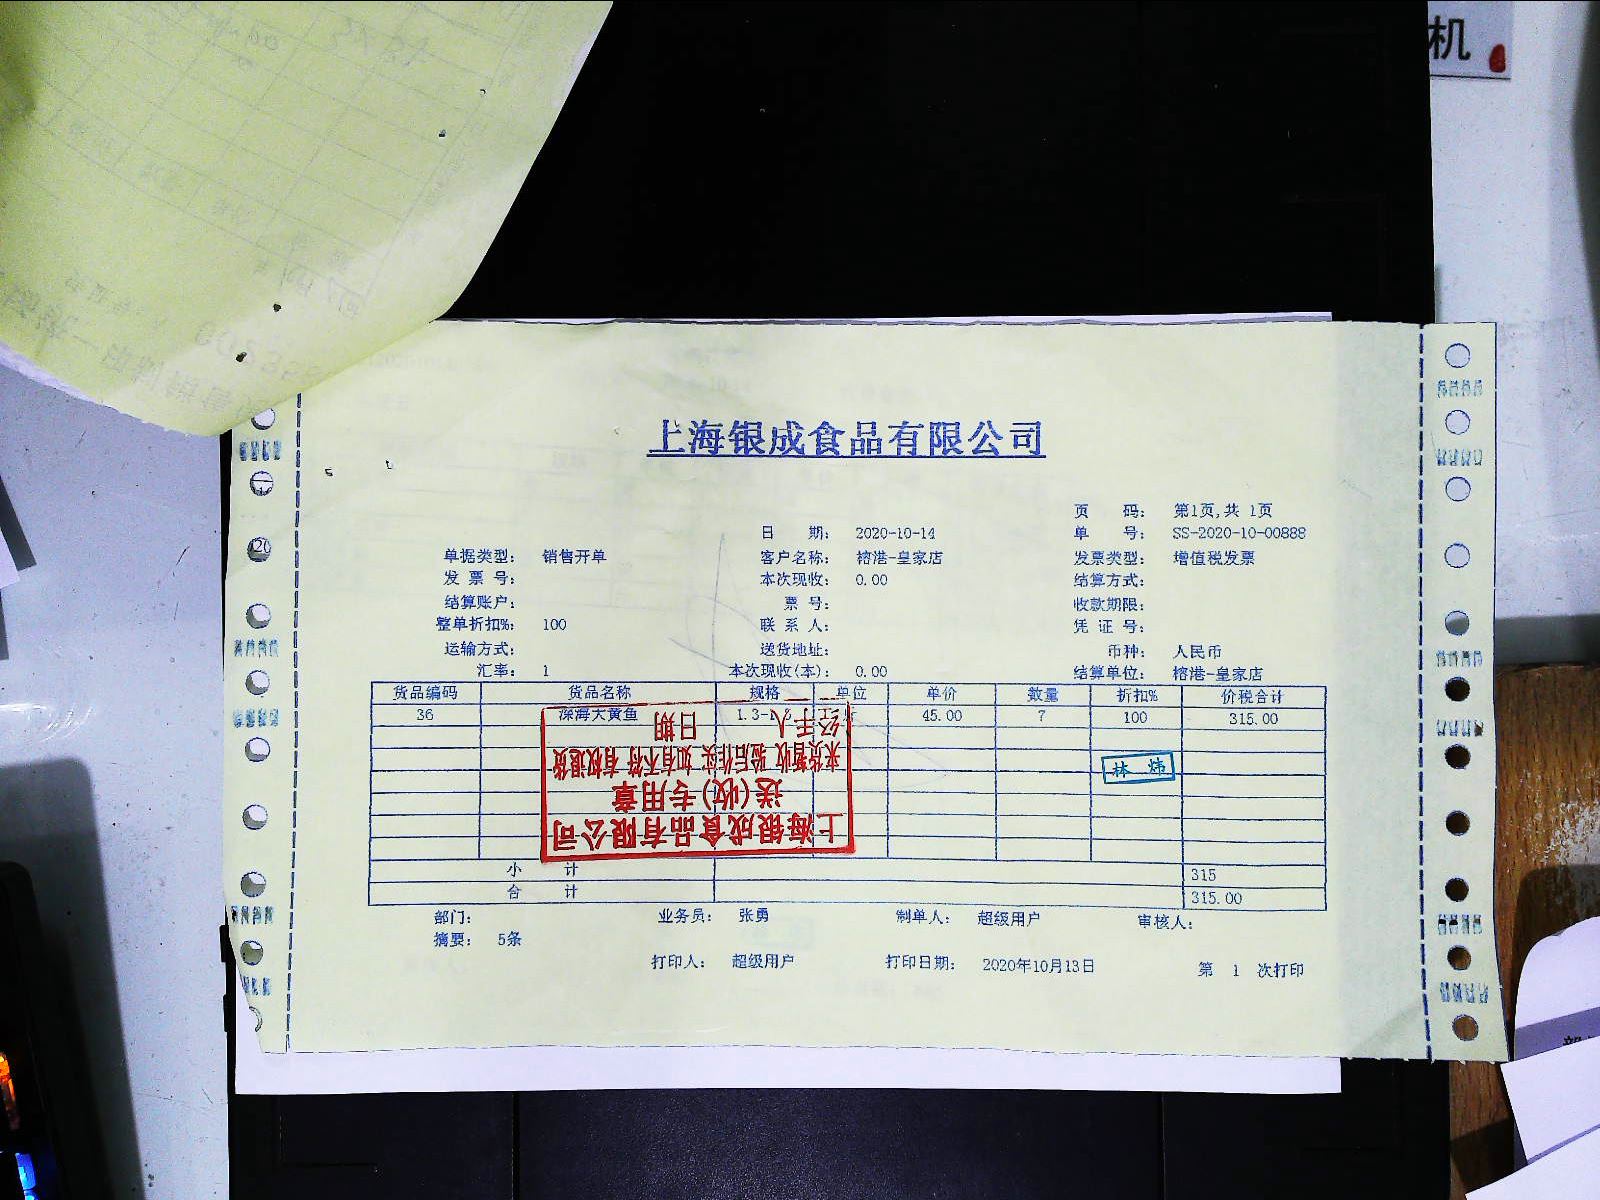 机
上海银成食品有限公司
页 码： 第1页,共 1页
日 期： 2020-10-14 单 号： SS-2020-10-00888
单据类型： 销售开单 客户名称： 榕港-皇家店 发票类型： 增值税发票
发 票 号： 本次现收： 0.00 结算方式：
结算账户： 票 号： 收款期限：
整单折扣%： 100 联 系 人： 凭 证 号：
运输方式： 送货地址： 币种： 人民币
汇率： 1 本次现收(本)： 0.00 结算单位： 榕港-皇家店
货品编码 货品名称 规格 单位 单价 数量 折扣% 价税合计
36 深海大黄鱼 45.00 7 100 315.00
上海银成食品有限公司
送(收)专用章
来货暂收 验后作实 如有不符 有权退货
经手人 日期
林 炜
小 计 315
合 计 315.00
部门： 业务员： 张勇 制单人： 超级用户 审核人：
摘要： 5条
打印人： 超级用户 打印日期： 2020年10月13日 第 1 次打印